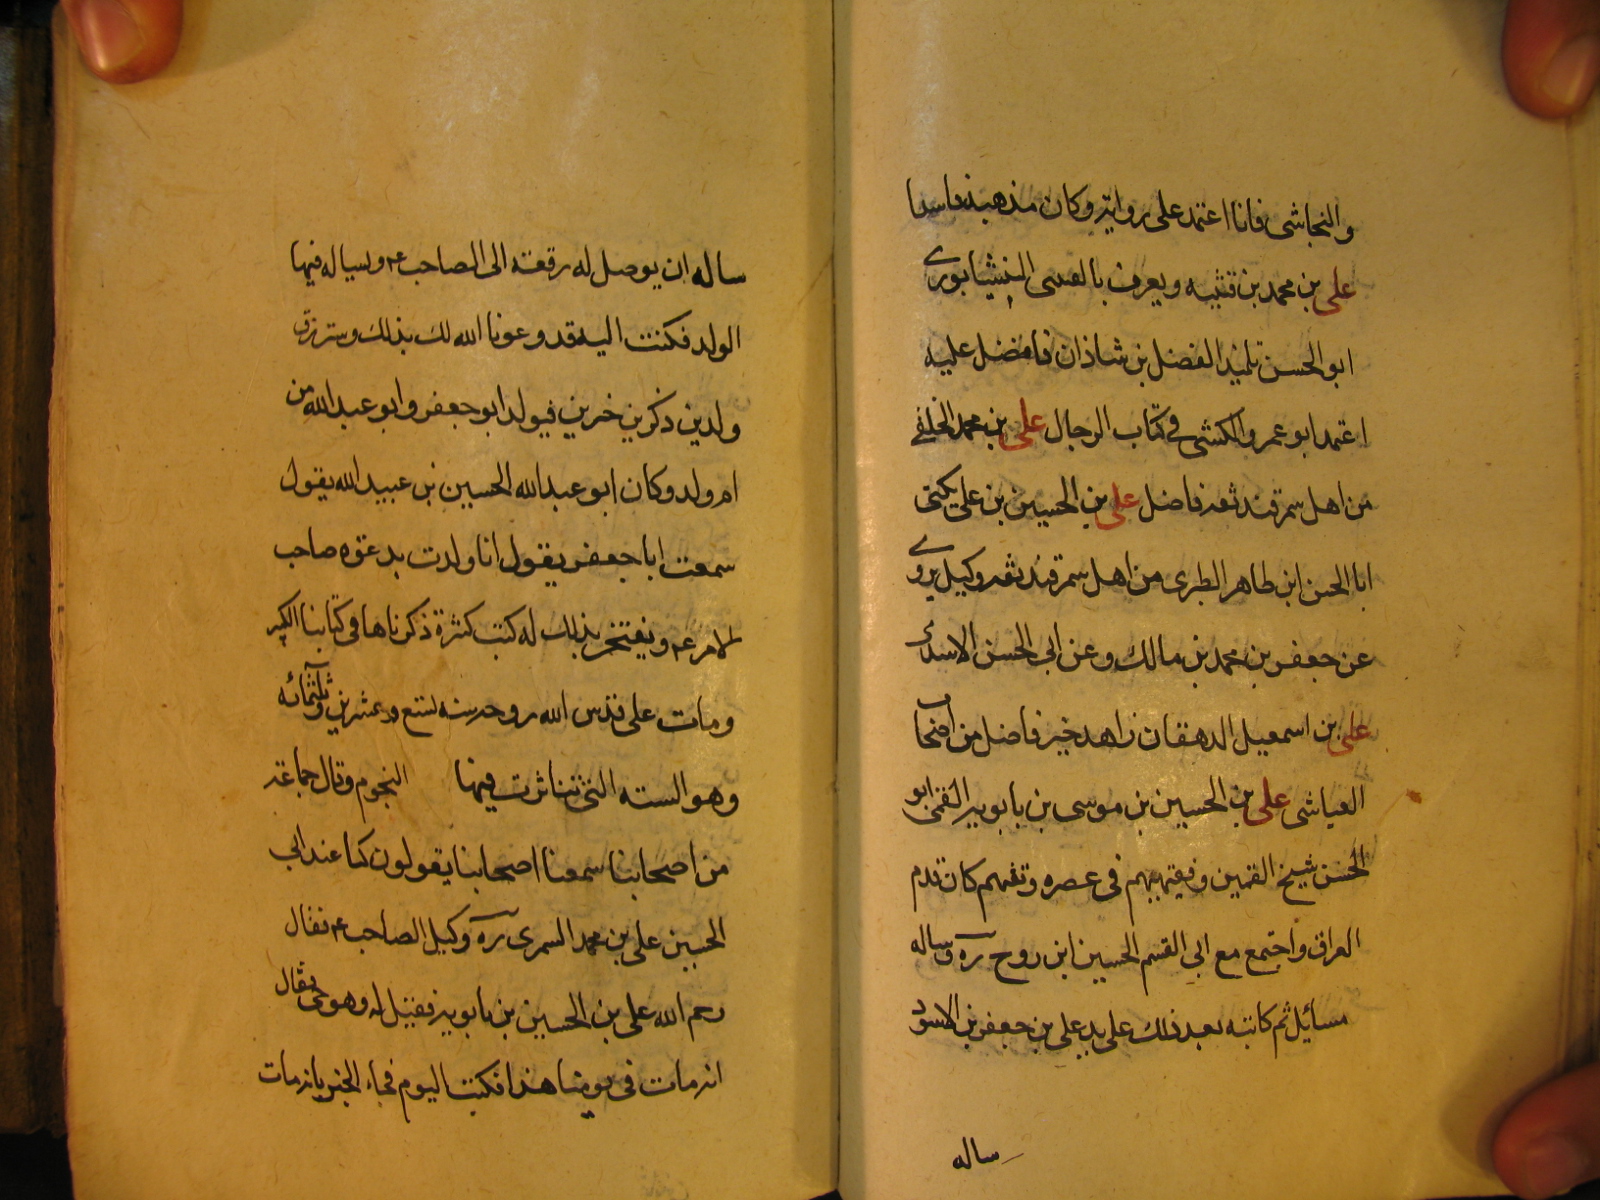 والنجاشى فانا اعتمد على روايته وكان مذهبه فاسدا
على بن محمد بن قتيبه ويعرف بالقتيبى النيشابورى
ابو الحسن تلميذ الفضل بن شاذان فاضل عليه
اعتمد ابو عمرو الكشى فى كتاب الرجال على بن محمد الخلفى
من اهل سمرقند ثقه فاضل على بن الحسين بن على يكنى
ابا الحسن ابن طاهر الطبرى من اهل سمرقند ثقه وكيل يروى
عن جعفر بن محمد بن مالك وعن ابى الحسن الاسدى
على بن اسمعيل الدهقان زاهد خير فاضل من اصحاب
العياشى على بن الحسين بن موسى بن بابويه القمى ابو
الحسن شيخ القمين وفقيههم فى عصره وثقتهم كان قدم
العراق واجتمع مع ابى القسم الحسين ابن روح ره وساله
مسائل ثم كاتبه بعد ذلك على يد على بن جعفر بن الاسود
ساله
ساله ان يوصل له رقعته الى الصاحب ع وسياله فيها
الولد فكتب اليه قد دعونا الله لك بذلك وسترزق
ولدين ذكرين خيرين فيولد ابو جعفر وابو عبد الله من
ام ولد وكان ابو عبد الله الحسين بن عبيد الله يقول
سمعت ابا جعفر يقول انا ولدت بدعوه صاحب
الامر ع ويفتخر بذلك له كتب كثرة ذكرناها فى كتابنا الكبير
ومات على قدس الله روحه سنه تسع وعشرين وثلثمائه
وهو السنه التى تناثرت فيها النجوم وقال جماعته
من اصحابنا سمعنا اصحابنا يقولون كنا عند ابى
الحسين على بن محمد السمرى ره وكيل الصاحب ع فقال
رحم الله على بن الحسين بن بابويه فقيل له وهو حى فقال
انه مات فى يومنا هذا فكتب اليوم فجاء الخبر بانه مات